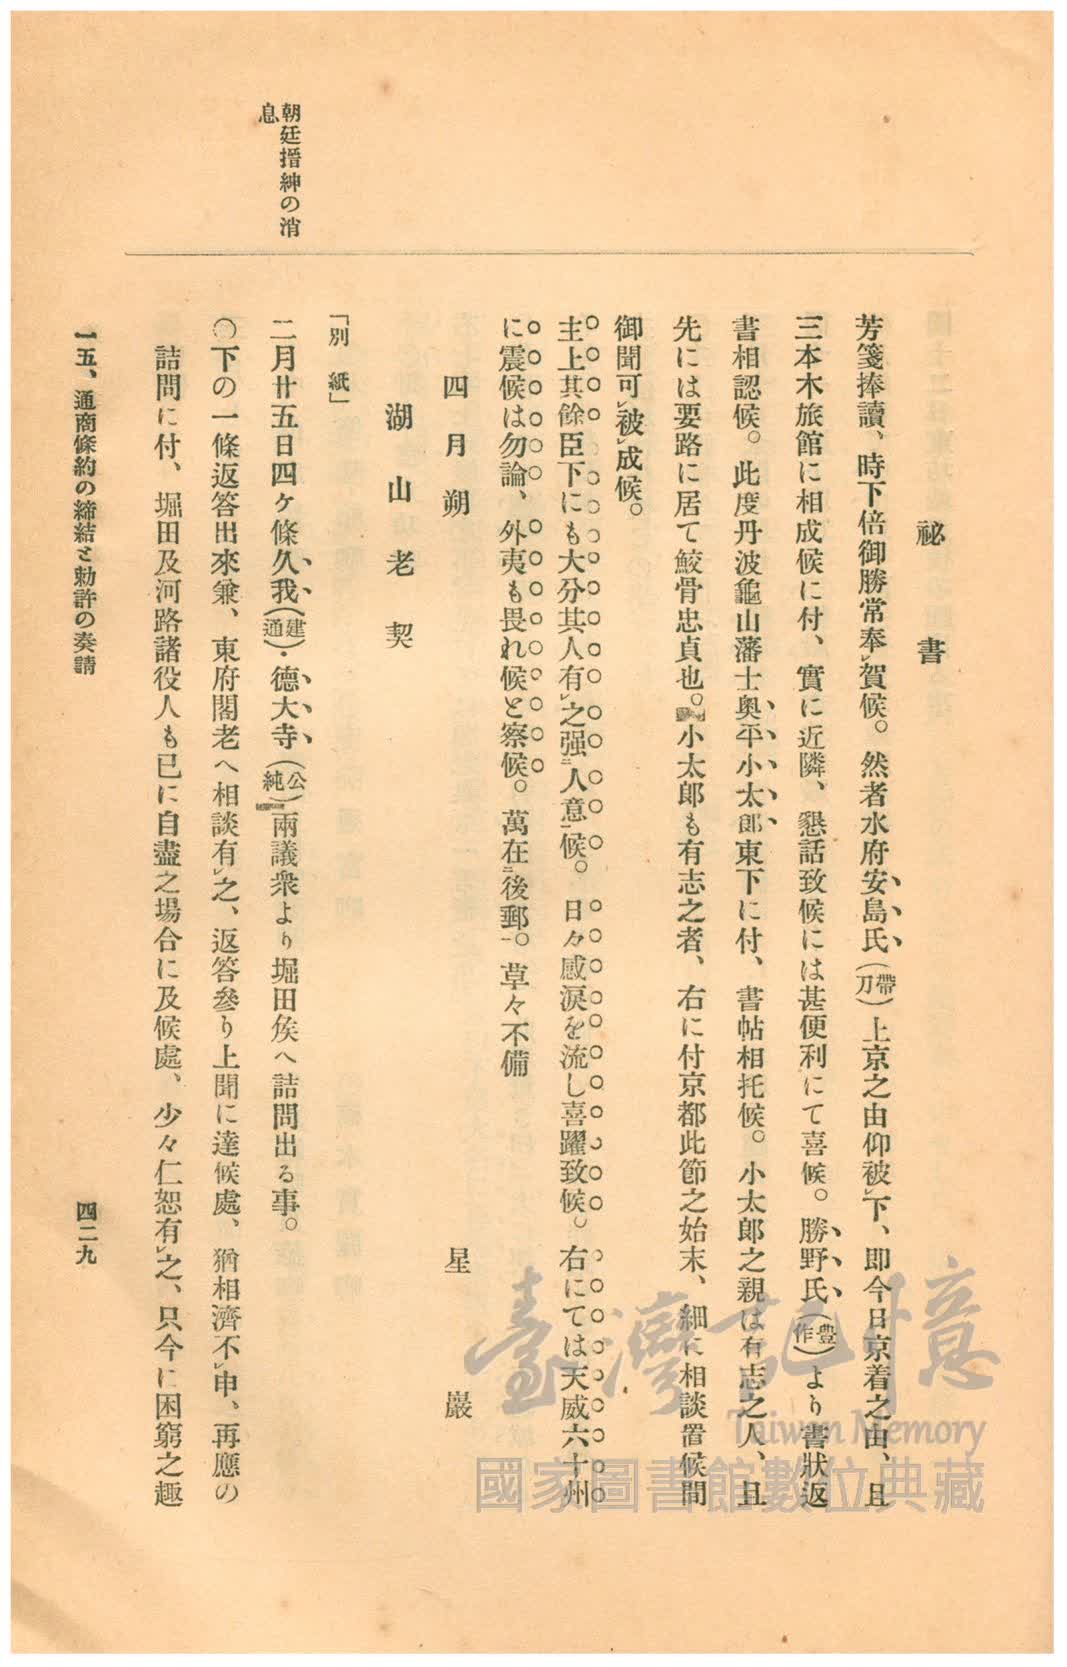 祕書
芳箋捧讀、時下倍御勝常奉レ賀候。然者水府安島氏(帶刀)上京之由仰被レ下、即今日京着之由、且
三本木旅館に相成候に付、實に近隣、懇話致候には甚便利にて喜候。勝野氏(豊作)より書狀返
書相認候。此度丹波龜山藩士奥平小太郎東下に付、書帖相托候。小太郎之親は有志之人、且
先には要路に居て鮫骨忠貞也。小太郎も有志之者、右に付京都此節之始末、細に相談置候間
御聞可レ被レ成候。
主上其餘臣下にも大分其人有レ之强二人意一候。日々感淚を流し喜躍致候。右にては天威六十州
に震候は勿論、外夷も畏れ候と察候。萬在二後郵一。草々不備
四月朔 星巖
湖山老契
「別紙」
二月廿五日四ケ條久我(建通)・德大寺(公純)兩議衆より堀田矦へ詰問出る事。
〇下の一條返答出來兼、東府閣老へ相談有レ之、返答參り上聞に達候處、猶相濟不レ申、再應の
詰問に付、堀田及河路諸役人も已に自盡之場合に及候處、少々仁恕有レ之、只今に困窮之趣
朝廷搢紳の消
息
一五、通商條約の締結と勅許の奏請
四二九
臺灣記憶
Taiwan Memory
國家圖書館數位典藏